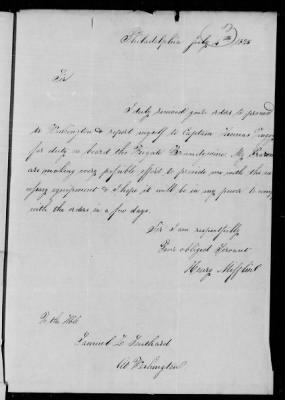 Philadelphia July 3 1825
Sir
I duly received your orders to proceed
to Washington & report myself to Captain Thomas
for duty on board the Frigate Brandywine My
are making every possible effort to provide me with the
equipment & I hope it will be in my power to comply
with the orders in a few days.
Sir I am respectfully
Your obliged Servant
Henry Mifflin
To the Hble
Samuel L Southard
At Washington